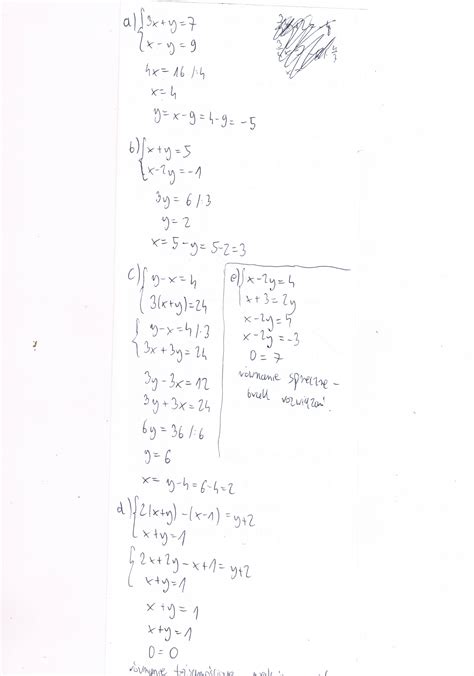 a) { 3x+y=7
x-y=9
4x=16 /:4
x=4
y=x-9=4-9=-5
b) { x+y=5
x-2y=-1
3y=6 /:3
y=2
x=5-y=5-2=3
c) { y-x=4
3(x+y)=24
{ y-x=4 /·3
3x+3y=24
3y-3x=12
3y+3x=24
6y=36 /:6
y=6
x=y-4=6-4=2
e) { x-2y=4
x+3=2y
x-2y=4
x-2y=-3
0=7
równanie sprzeczne -
brak rozwiązań.
d) { 2(x+y)-(x-1)=y+2
x+y=1
{ 2x+2y-x+1=y+2
x+y=1
x+y=1
x+y=1
0=0
równanie